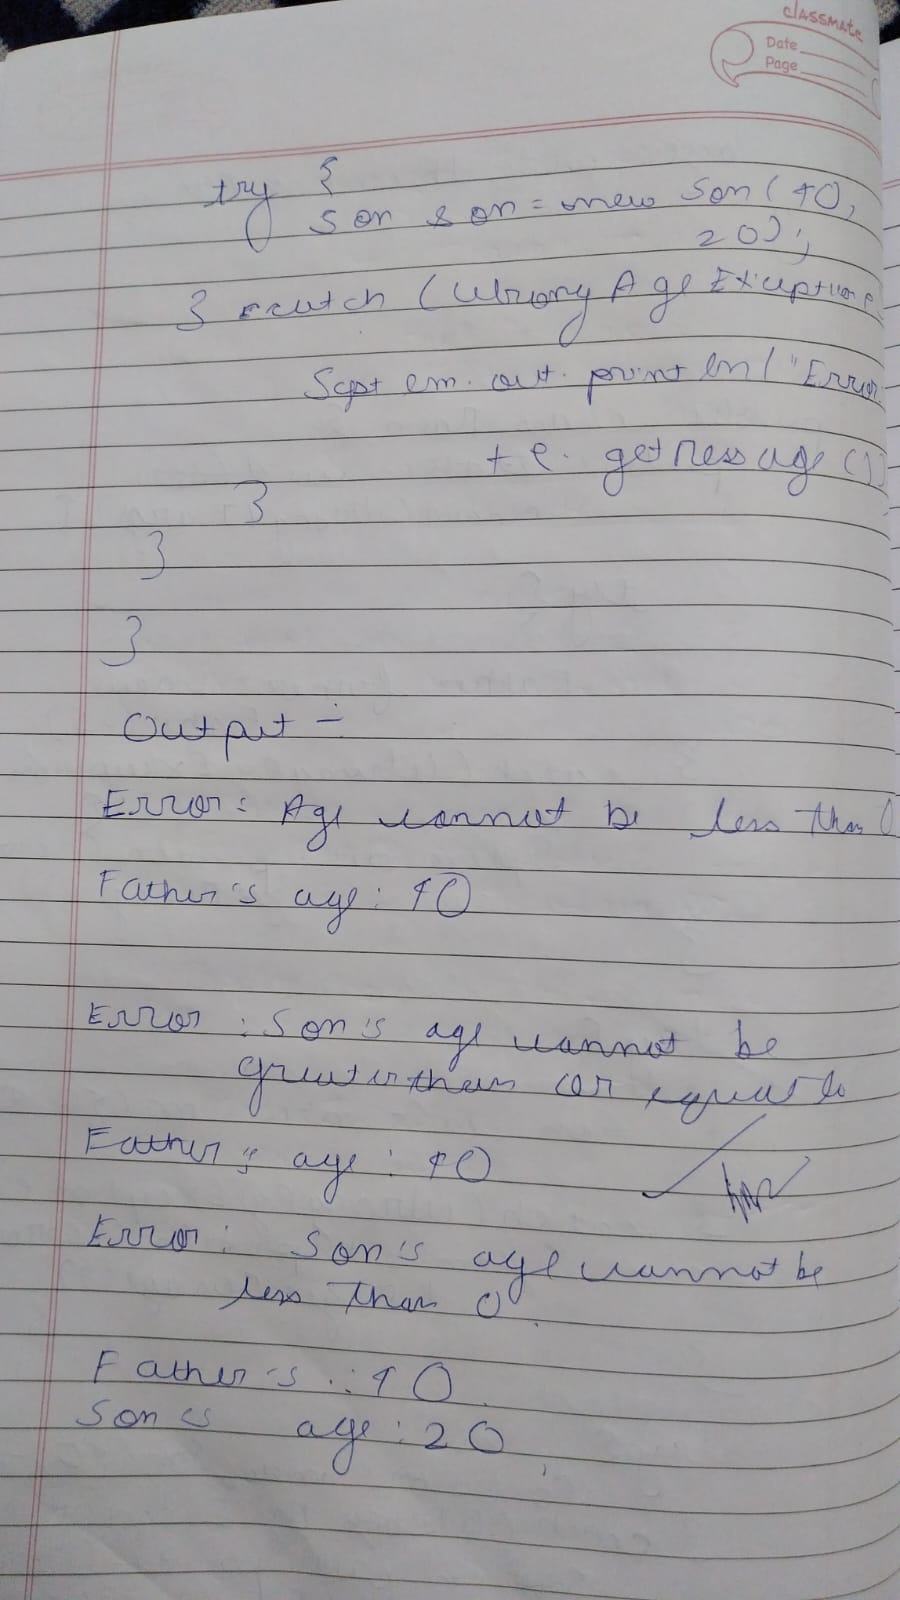 classmate
Date
Page
try {
Son son = new Son (40,
20);
} catch (WrongAgeException e
System.out.println("Error:
+ e.getMessage())
}
}
}
Output :-
Error: Age cannot be less than 0
Father's age: 40
Error: Son's age cannot be
greater than or equal to
Father's age: 40
Error: Son's age cannot be
less than 0.
Father's : 40
Son's age: 20